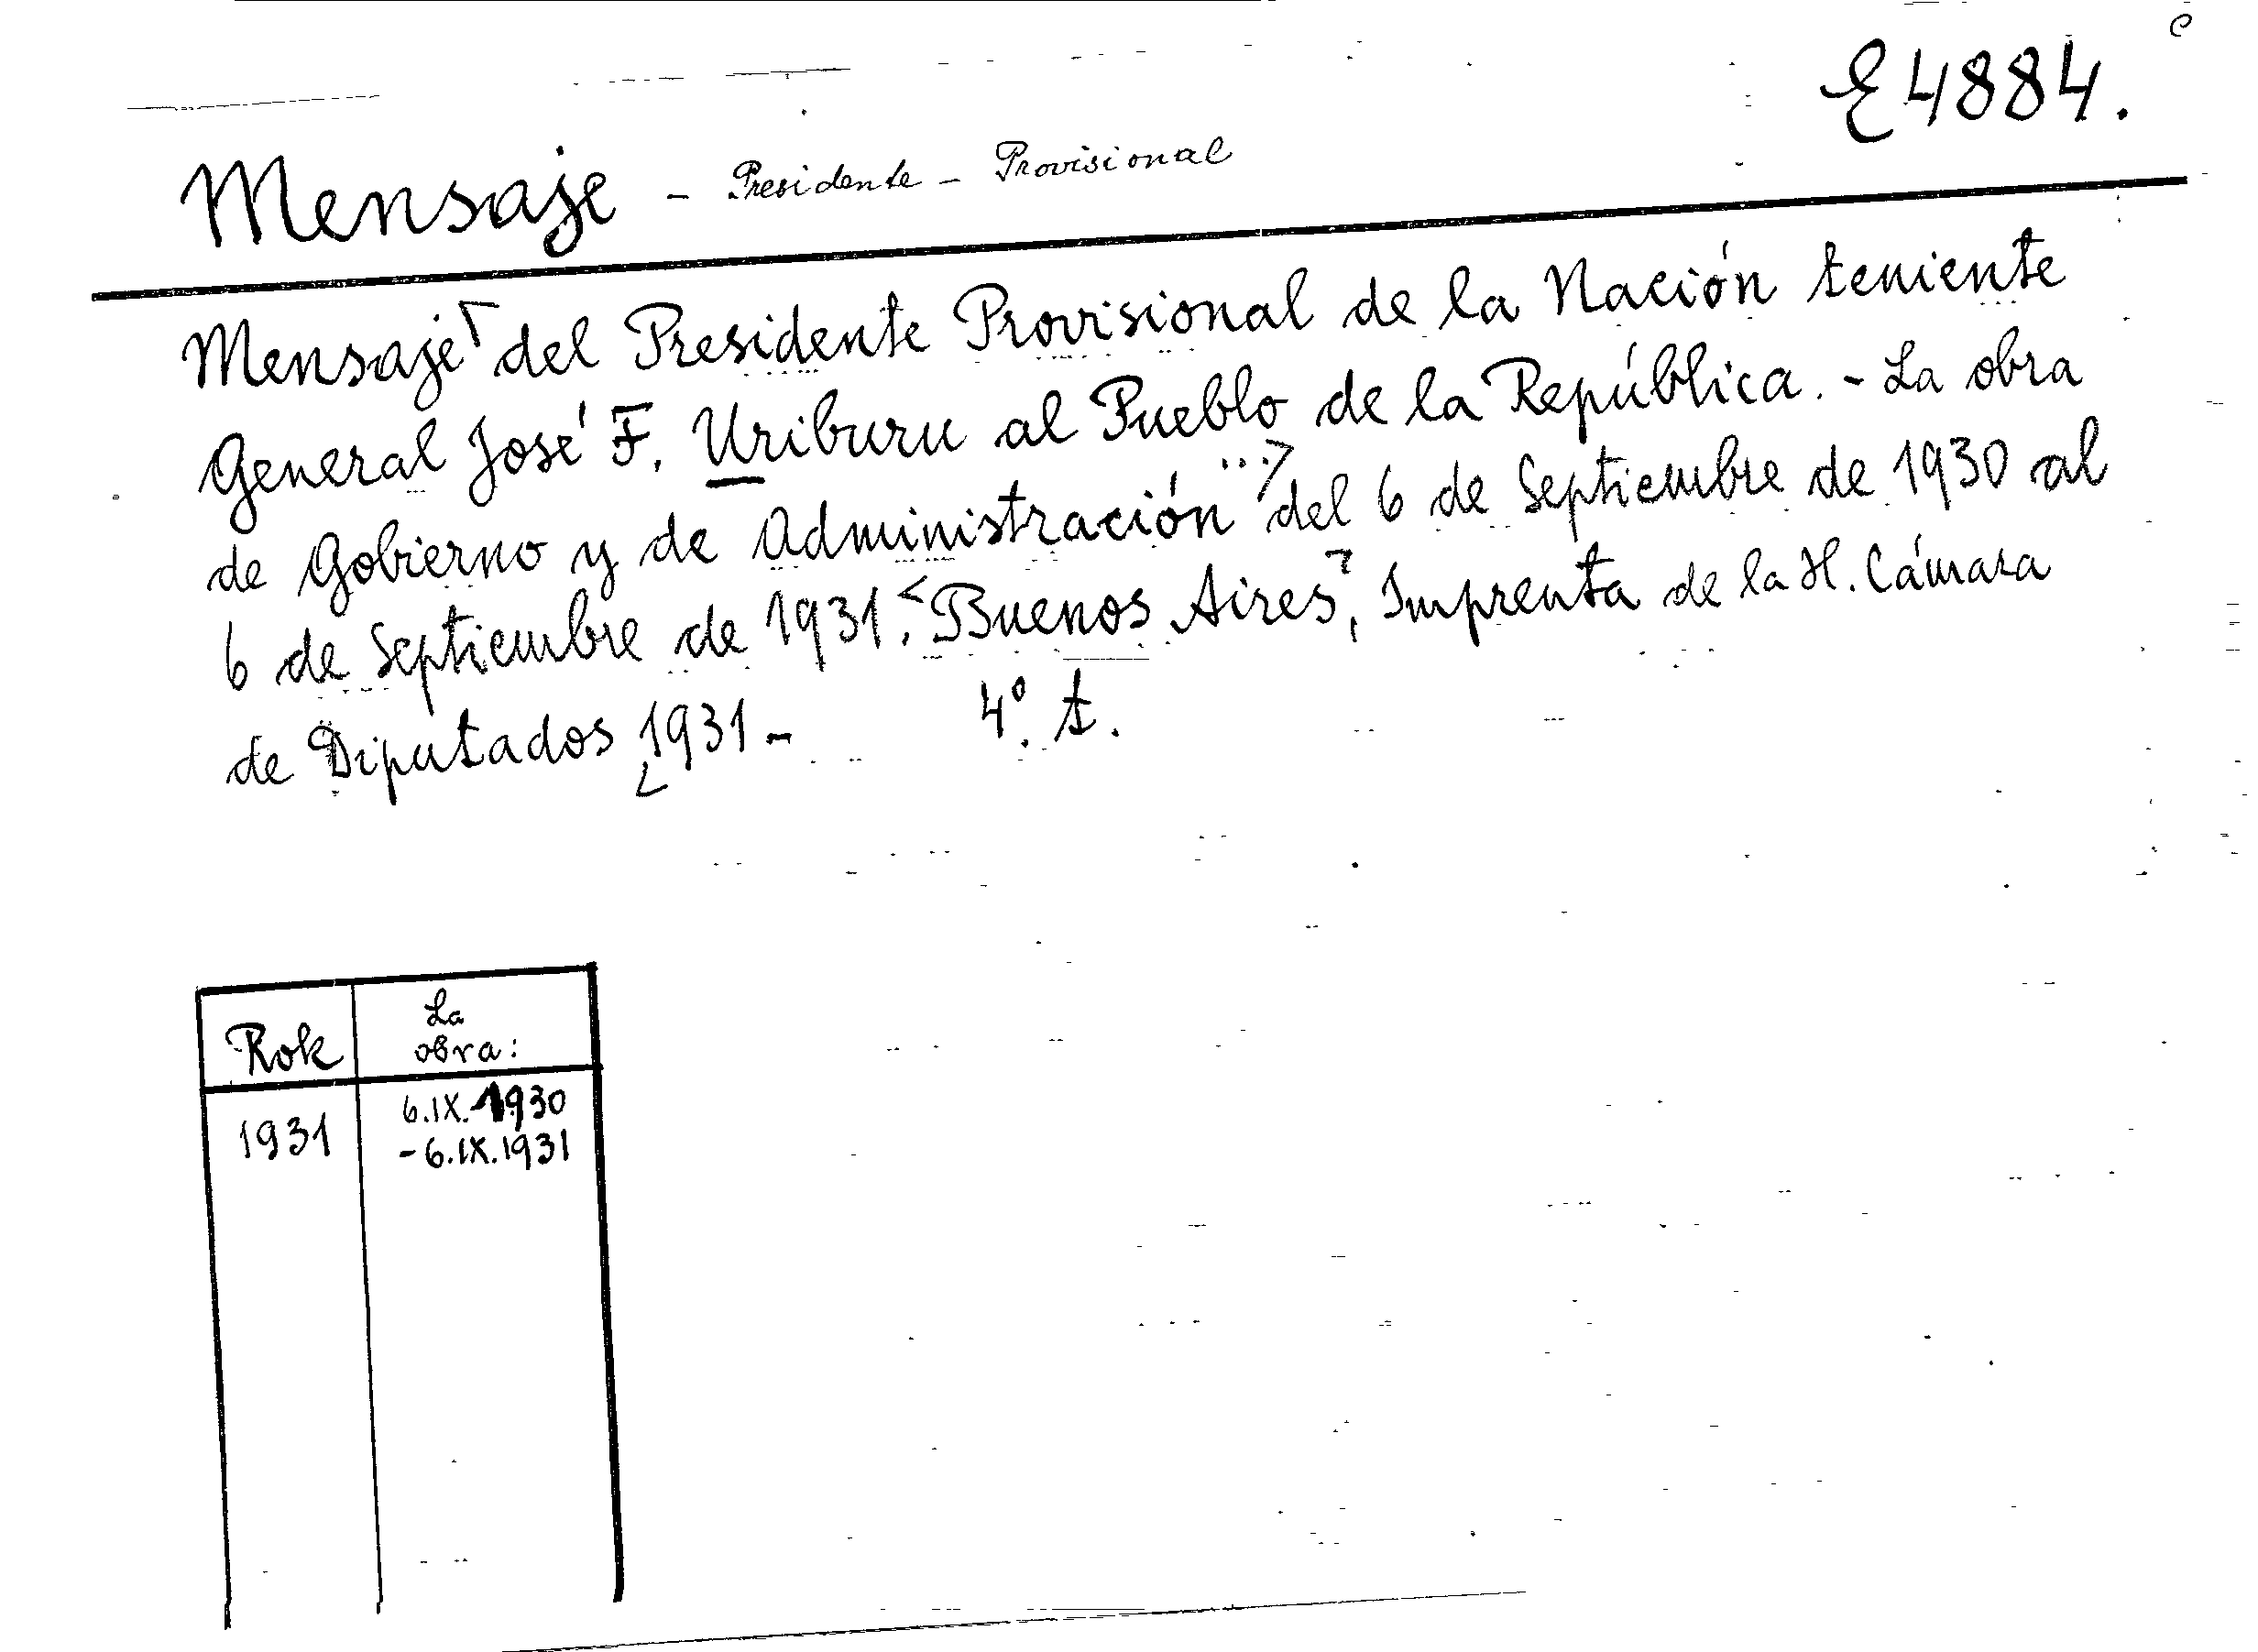 E 4884.
Mensaje - Presidente - Provisional
Mensaje del Presidente Provisional de la Nación teniente
General José F. Uriburu al Pueblo de la República. - La obra
de Gobierno y de Administración ... del 6 de Septiembre de 1930 al
6 de Septiembre de 1931. Buenos Aires, Imprenta de la H. Cámara
de Diputados 1931 - 4º. t.
Rok La obra:
1931 6.IX.1930
- 6.IX.1931